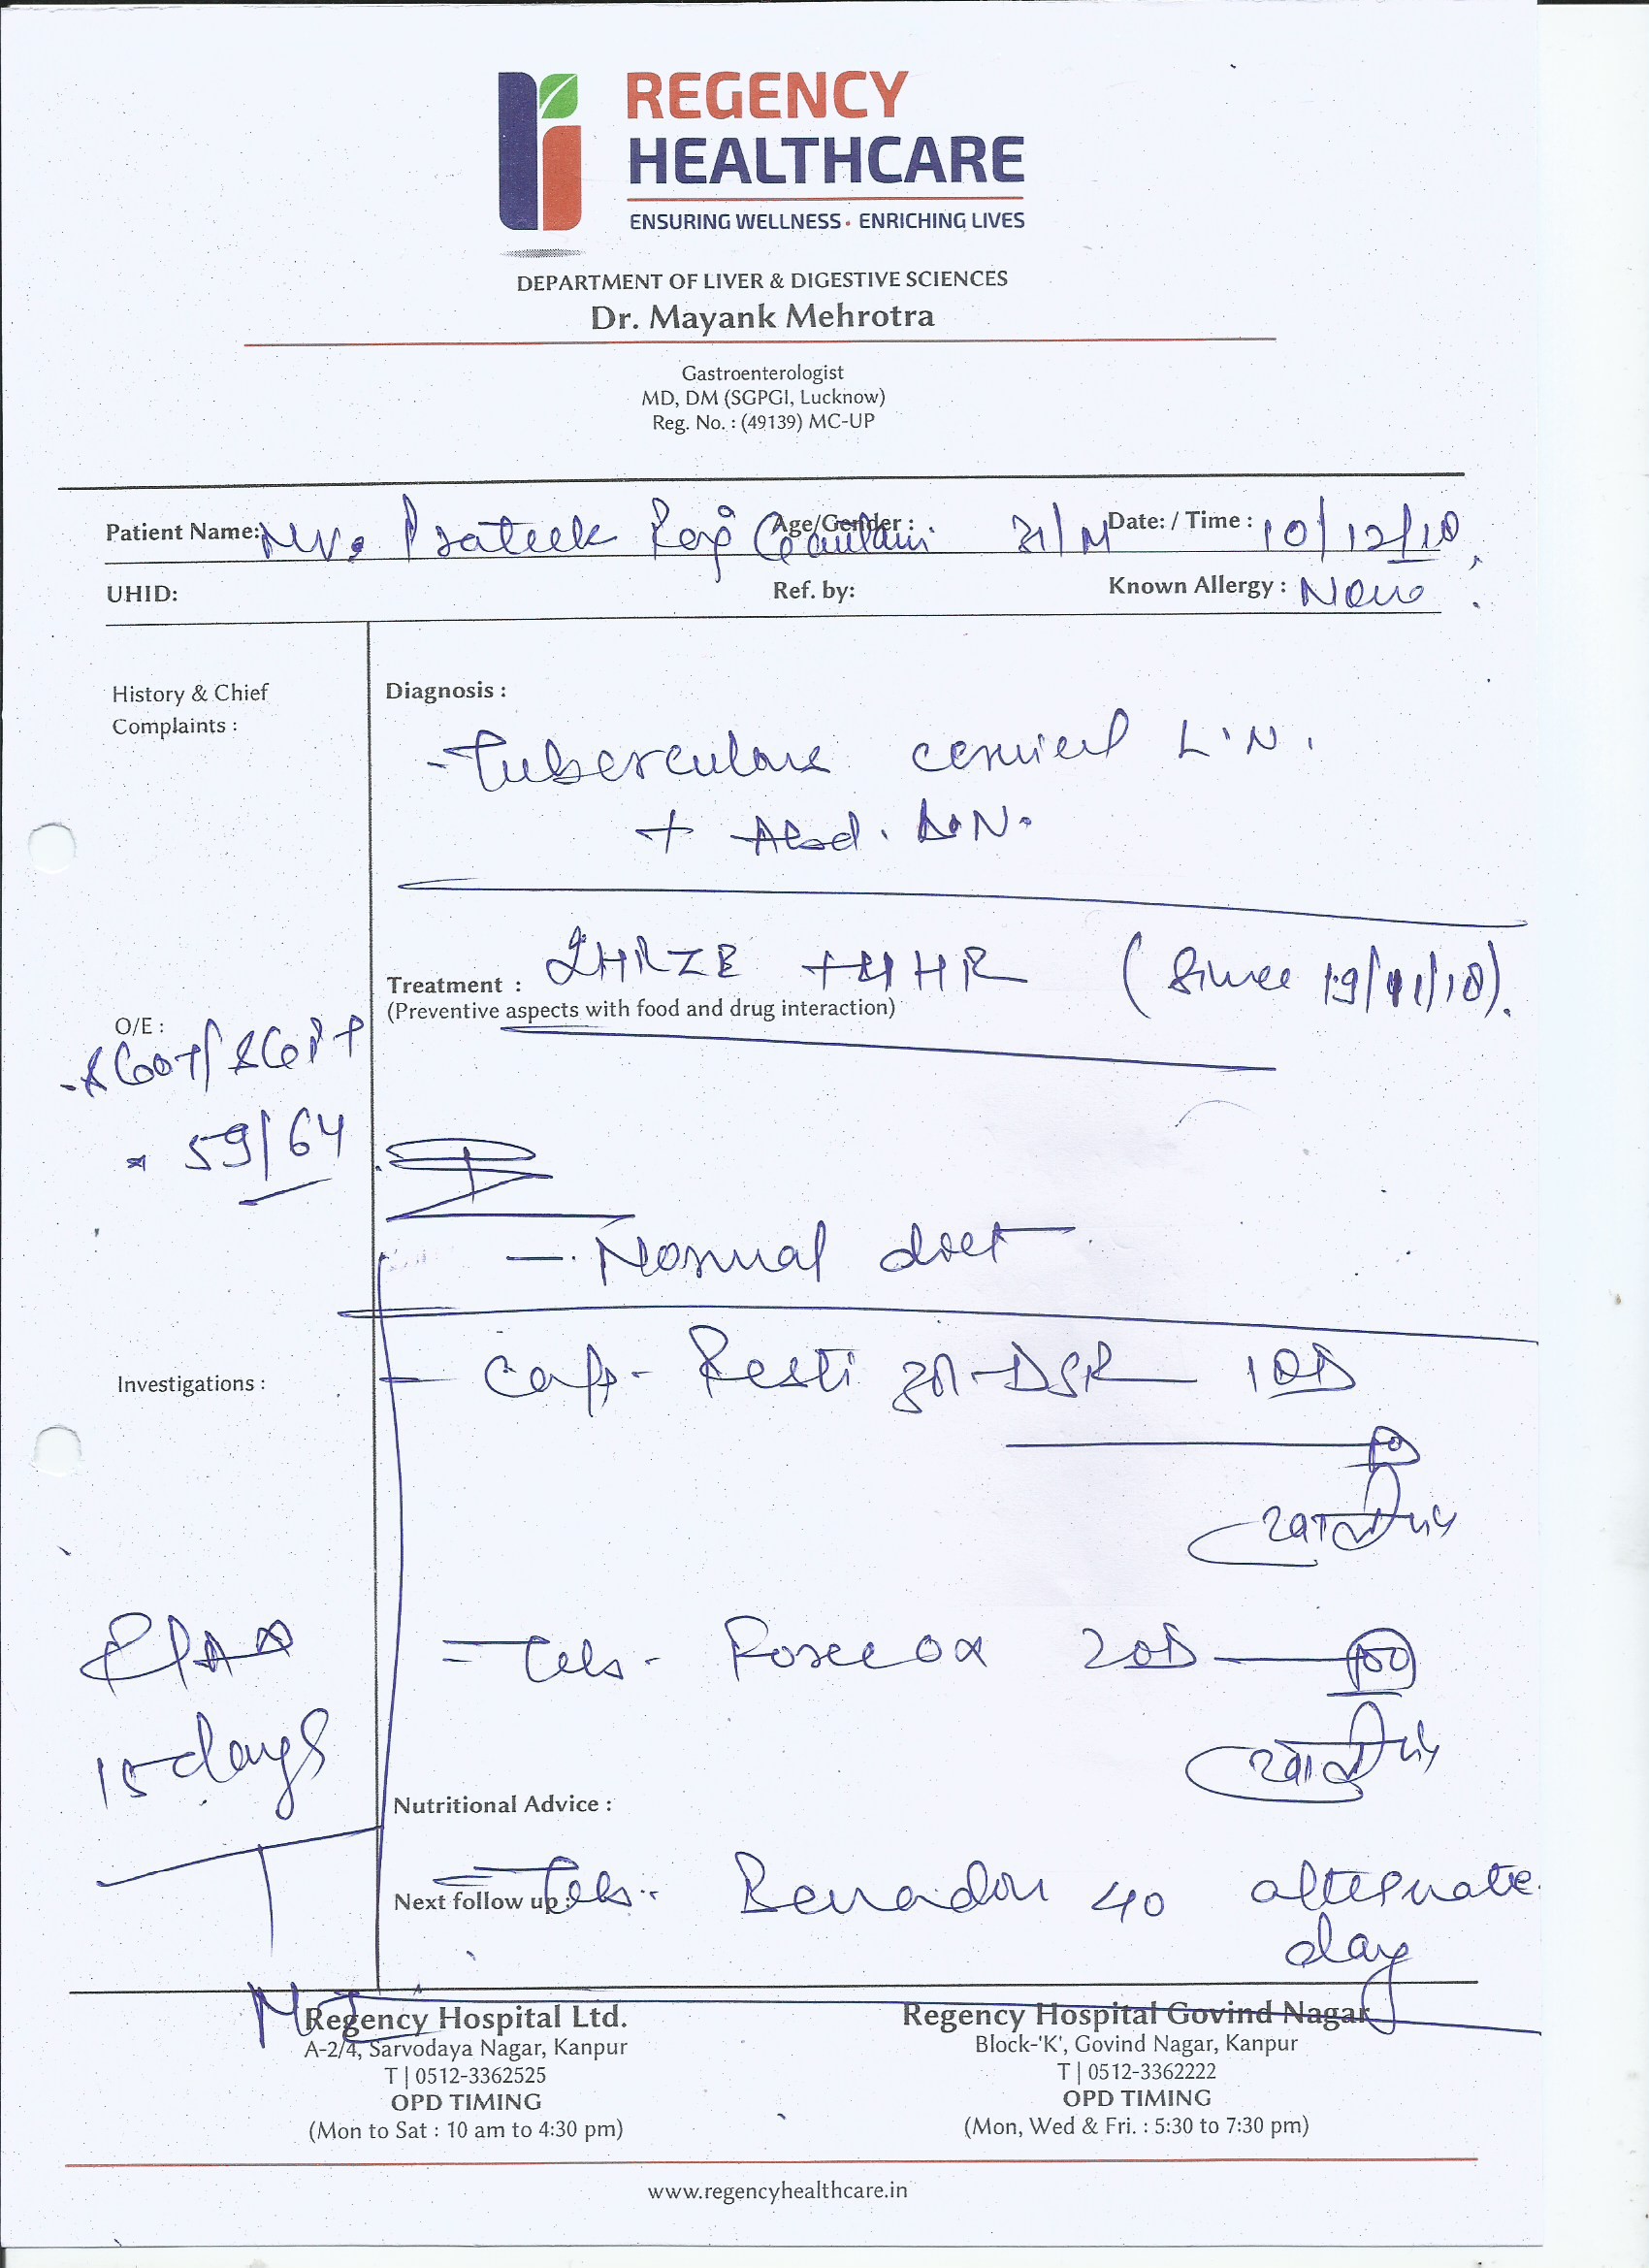 REGENCY
HEALTHCARE
ENSURING WELLNESS • ENRICHING LIVES
DEPARTMENT OF LIVER & DIGESTIVE SCIENCES
Dr. Mayank Mehrotra
Gastroenterologist
MD, DM (SGPGI, Lucknow)
Reg. No. : (49139) MC-UP
Patient Name: Mr. Prateek Raj Gautam Age/Gender : 31/M Date: / Time : 10/12/18
UHID: Ref. by: Known Allergy : None
History & Chief
Complaints :
Diagnosis :
- Tuberculous cervical L.N.
+ Abd. L.N.
Treatment : 2HRZE + 4HR (Since 19/11/18).
(Preventive aspects with food and drug interaction)
O/E :
- SGOT/SGPT
= 59/64
- Normal diet
Investigations :
- Cap- DSR 1OD
खाली पेट
15 days
= Tab- 2OD
खाली पेट
Nutritional Advice :
Next follow up :
= Tab- Benadon 40 alternate
day
Regency Hospital Ltd.
A-2/4, Sarvodaya Nagar, Kanpur
T | 0512-3362525
OPD TIMING
(Mon to Sat : 10 am to 4:30 pm)
Regency Hospital Govind Nagar
Block-'K', Govind Nagar, Kanpur
T | 0512-3362222
OPD TIMING
(Mon, Wed & Fri. : 5:30 to 7:30 pm)
www.regencyhealthcare.in